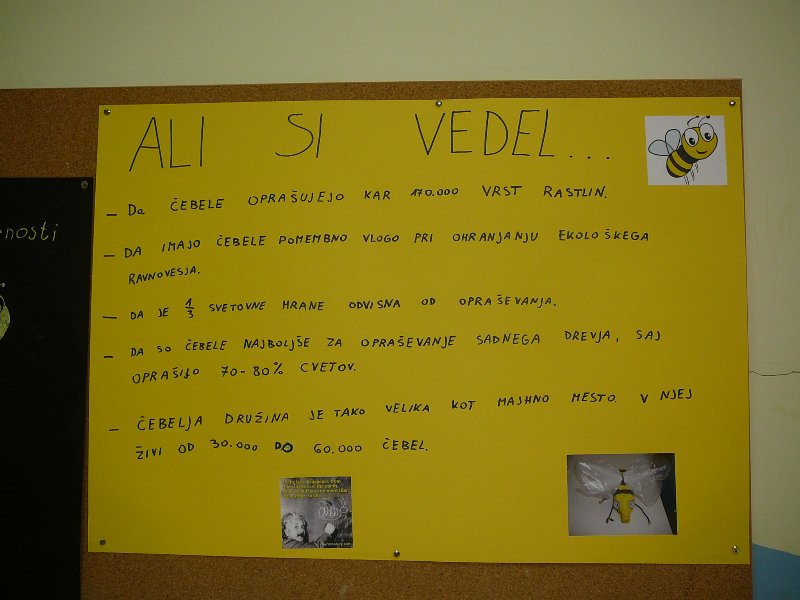 ALI SI VEDEL...
nosti
– Da ČEBELE OPRAŠUJEJO KAR 170.000 VRST RASTLIN.
– DA IMAJO ČEBELE POMEMBNO VLOGO PRI OHRANJANJU EKOLOŠKEGA
RAVNOVESJA.
– DA JE 1/3 SVETOVNE HRANE ODVISNA OD OPRAŠEVANJA.
– DA SO ČEBELE NAJBOLJŠE ZA OPRAŠEVANJE SADNEGA DREVJA, SAJ
OPRAŠIJO 70-80% CVETOV.
– ČEBELJA DRUŽINA JE TAKO VELIKA KOT MAJHNO MESTO. V NJEJ
ŽIVI OD 30.000 DO 60.000 ČEBEL.